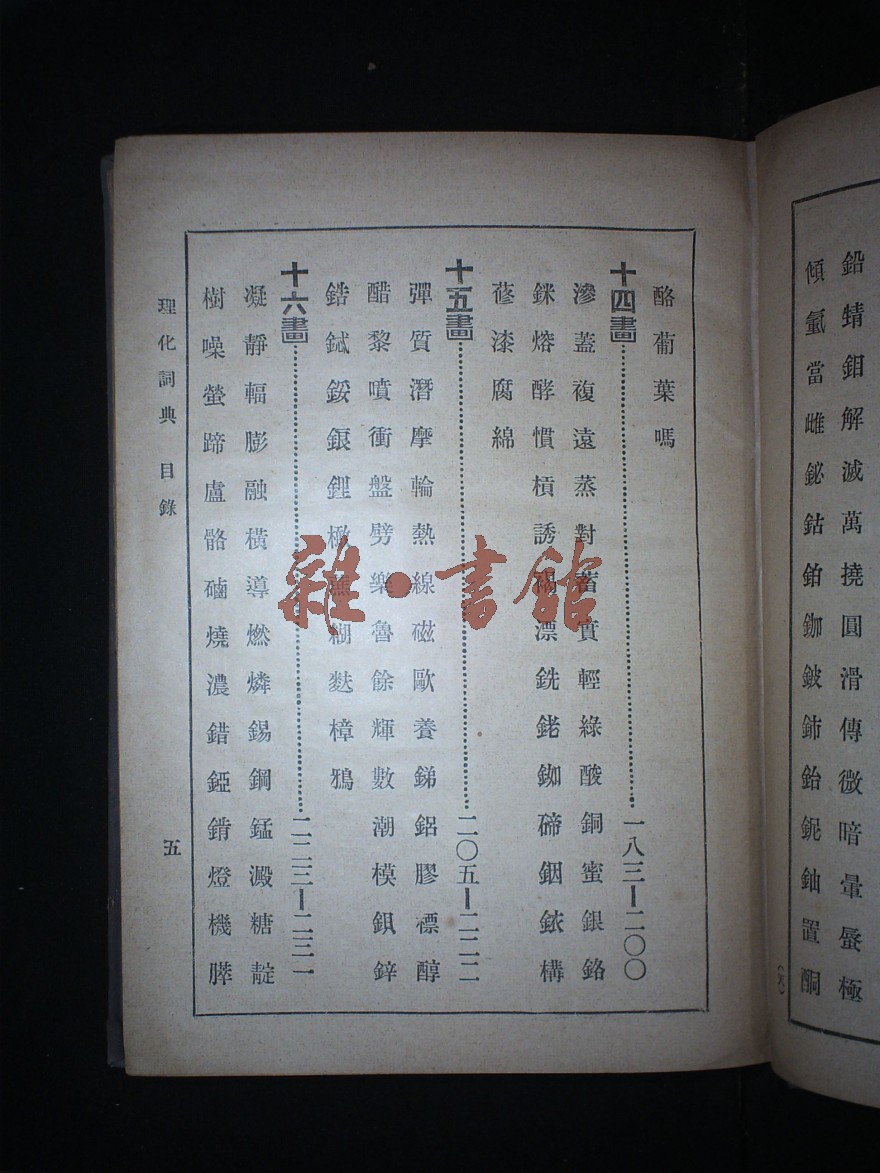 鉛蜻鉬解滅萬撓圓滑傳微暗暈蜃極
傾氫當雌鉍鈷鉑鉫鈹鈰鉛鈮鈾置酮
酪葡葉嗎
十四畫……一八三—二〇〇
滲蓋複遠蒸對蓄實輕綠酸銅蜜銀鉻
銤熔酵慣槓誘漂銑銠銣碲銦銥構
蓚漆腐綿
十五畫……二〇五—二二二
彈質潛摩輪熱線磁歐養銻鋁膠標醇
醋黎噴衝盤劈樂魯餘輝數潮模鋇鋅
鋯鋱鋄鋃鋰橄蕉糊麩樟鴉
十六畫……二二三—二三一
凝靜輻膨融橫導燃燐錫鋼錳澱糖靛
樹噪螢蹄盧骼硇燒濃錯錏錆燈機膵
理化詞典 目錄 五
雜·書館